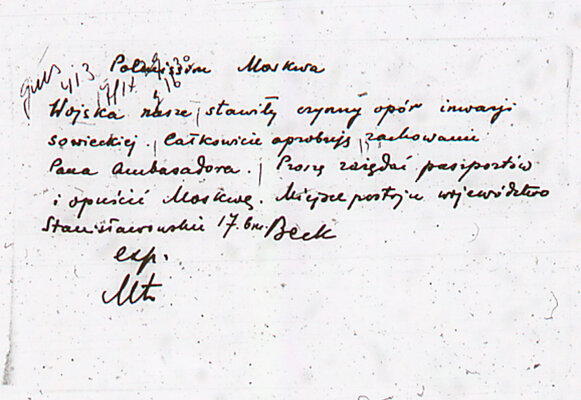 Polmission Moskwa
Wojska nasze stawiły czynny opór inwazji
sowieckiej. Całkowicie aprobuję zachowanie
Pana Ambasadora. Proszę zażądać paszportów
i opuścić Moskwę. Miejsce postoju województwo
Stanisławowskie 17. bm. Beck
exp.